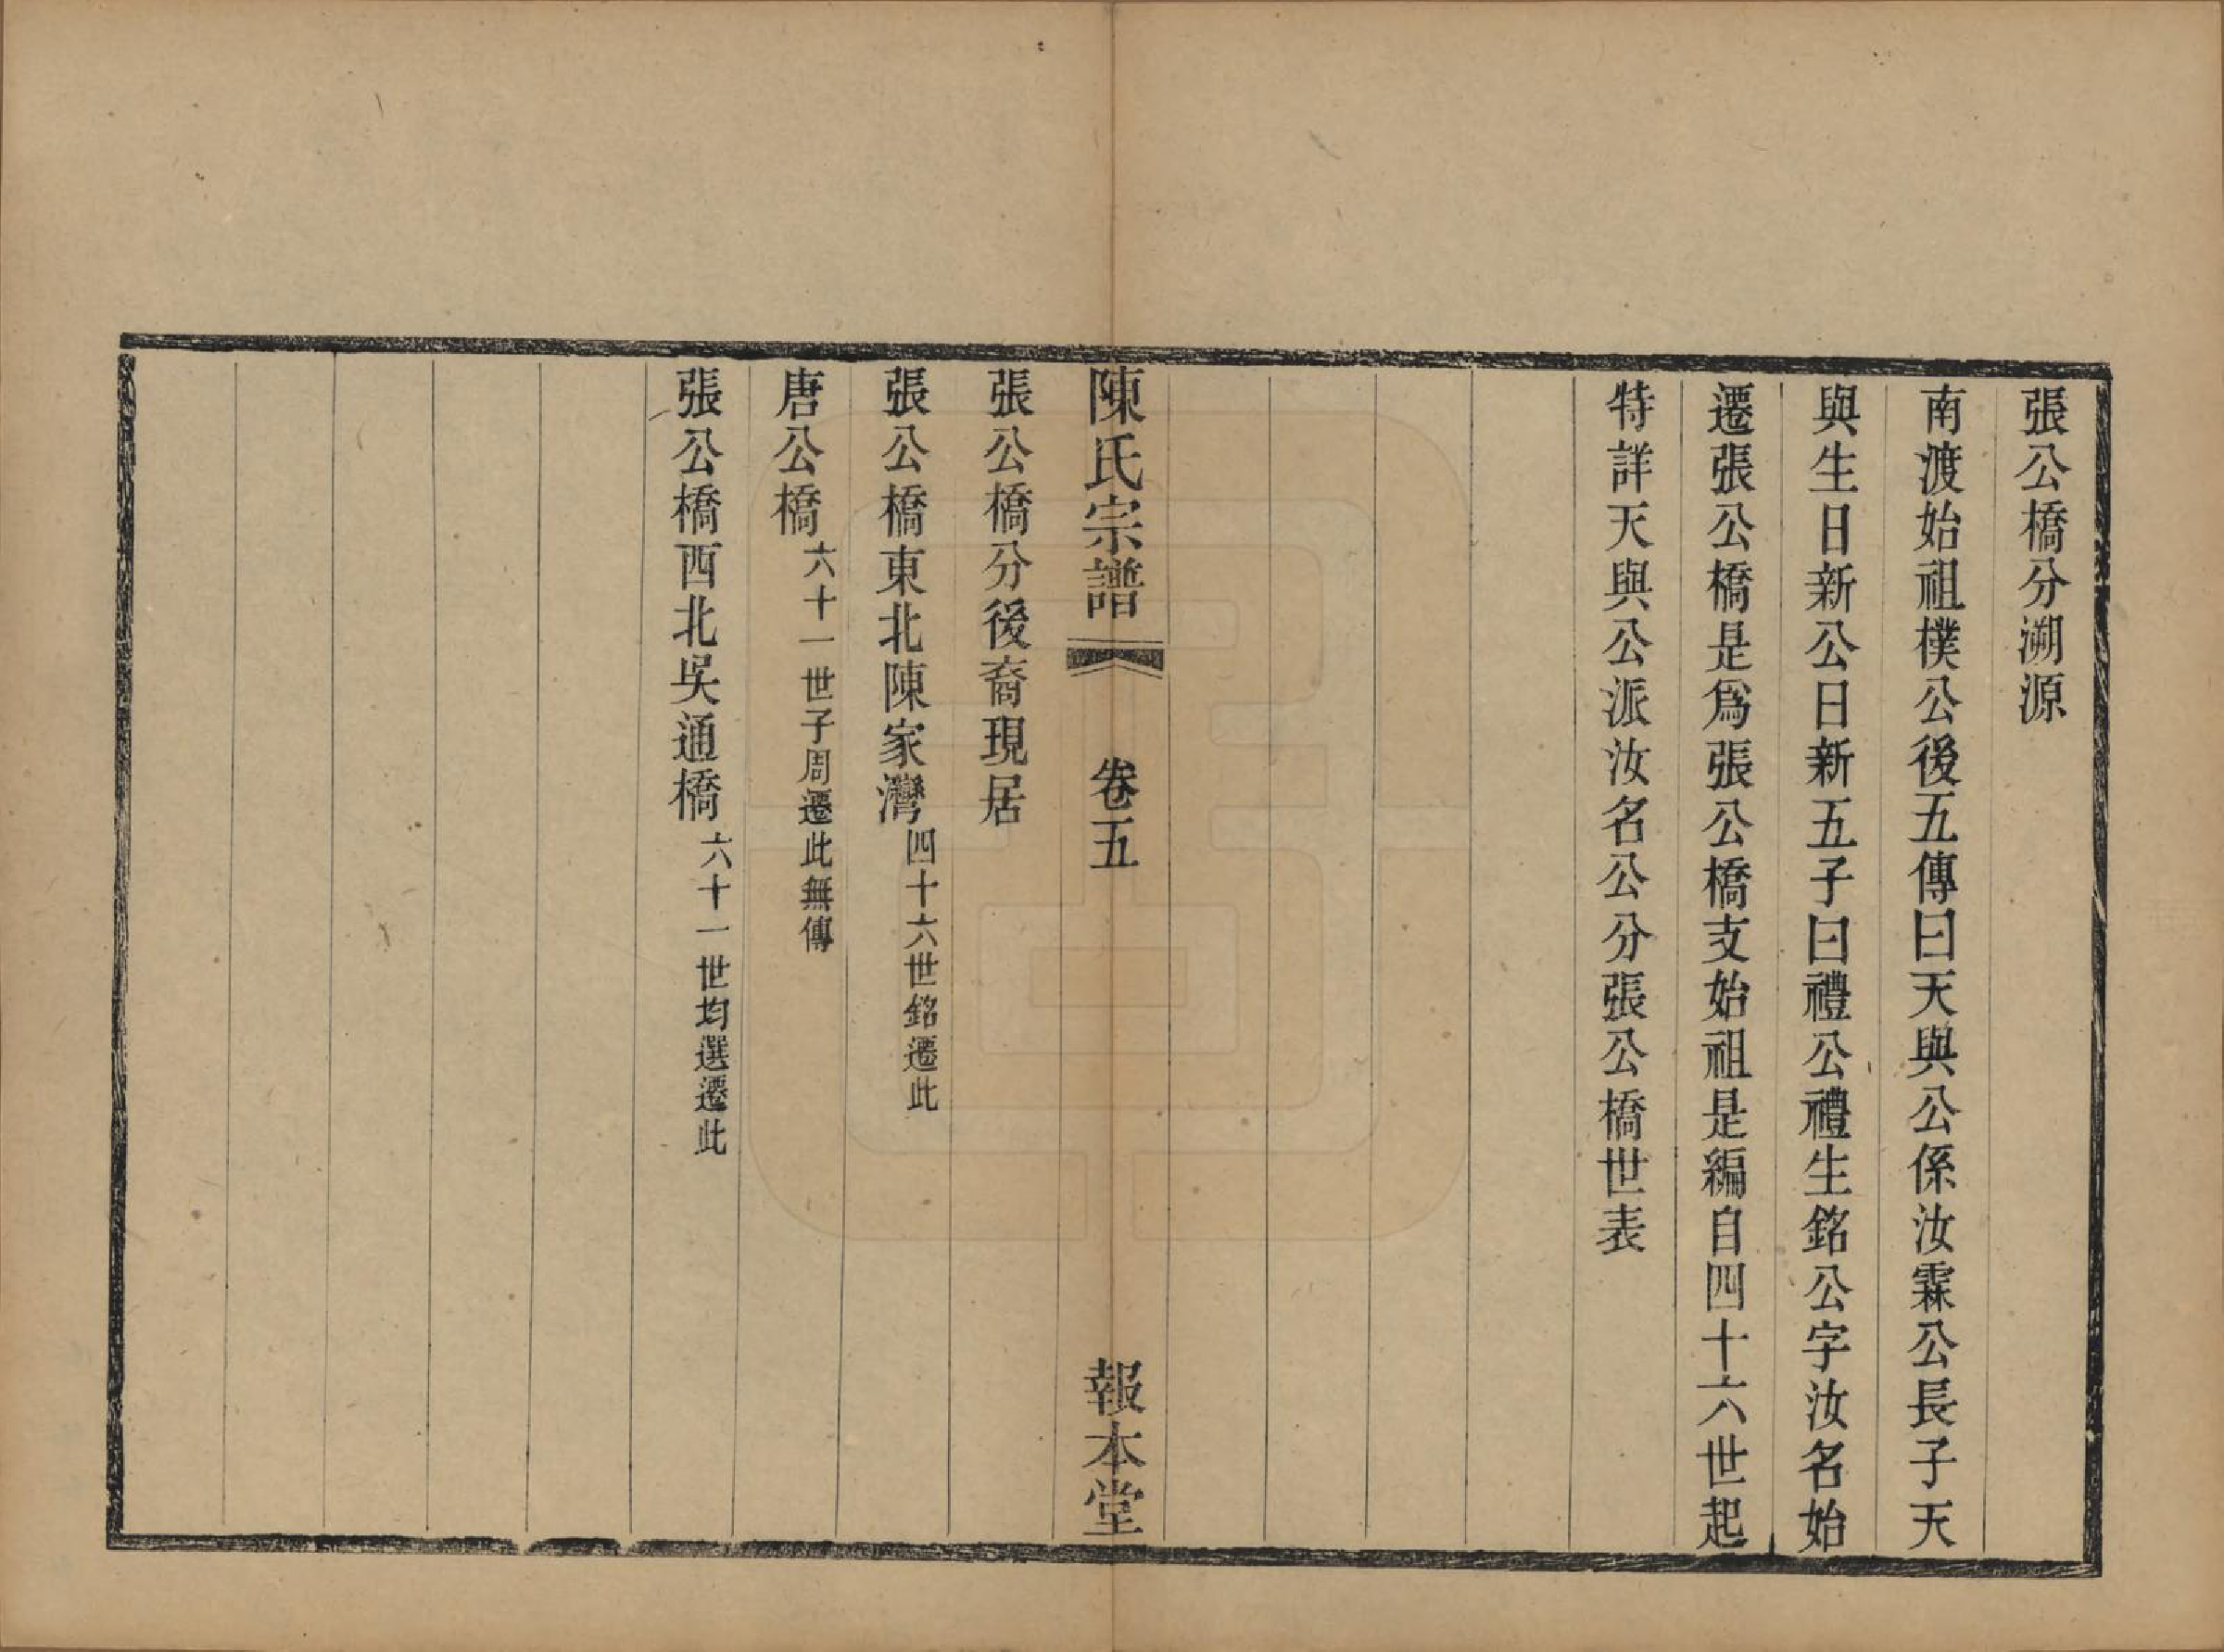 張公橋分溯源
南渡始祖樸公後五傳曰天與公係汝霖公長子天
與生日新公日新五子曰禮公禮生銘公字汝名始
遷張公橋是爲張公橋支始祖是編自四十六世起
特詳天與公派汝名公分張公橋世表
陳氏宗譜 卷五 報本堂
張公橋分後裔現居
張公橋東北陳家灣四十六世銘遷此
唐公橋六十一世子周遷此無傳
張公橋西北吳通橋六十一世均選遷此